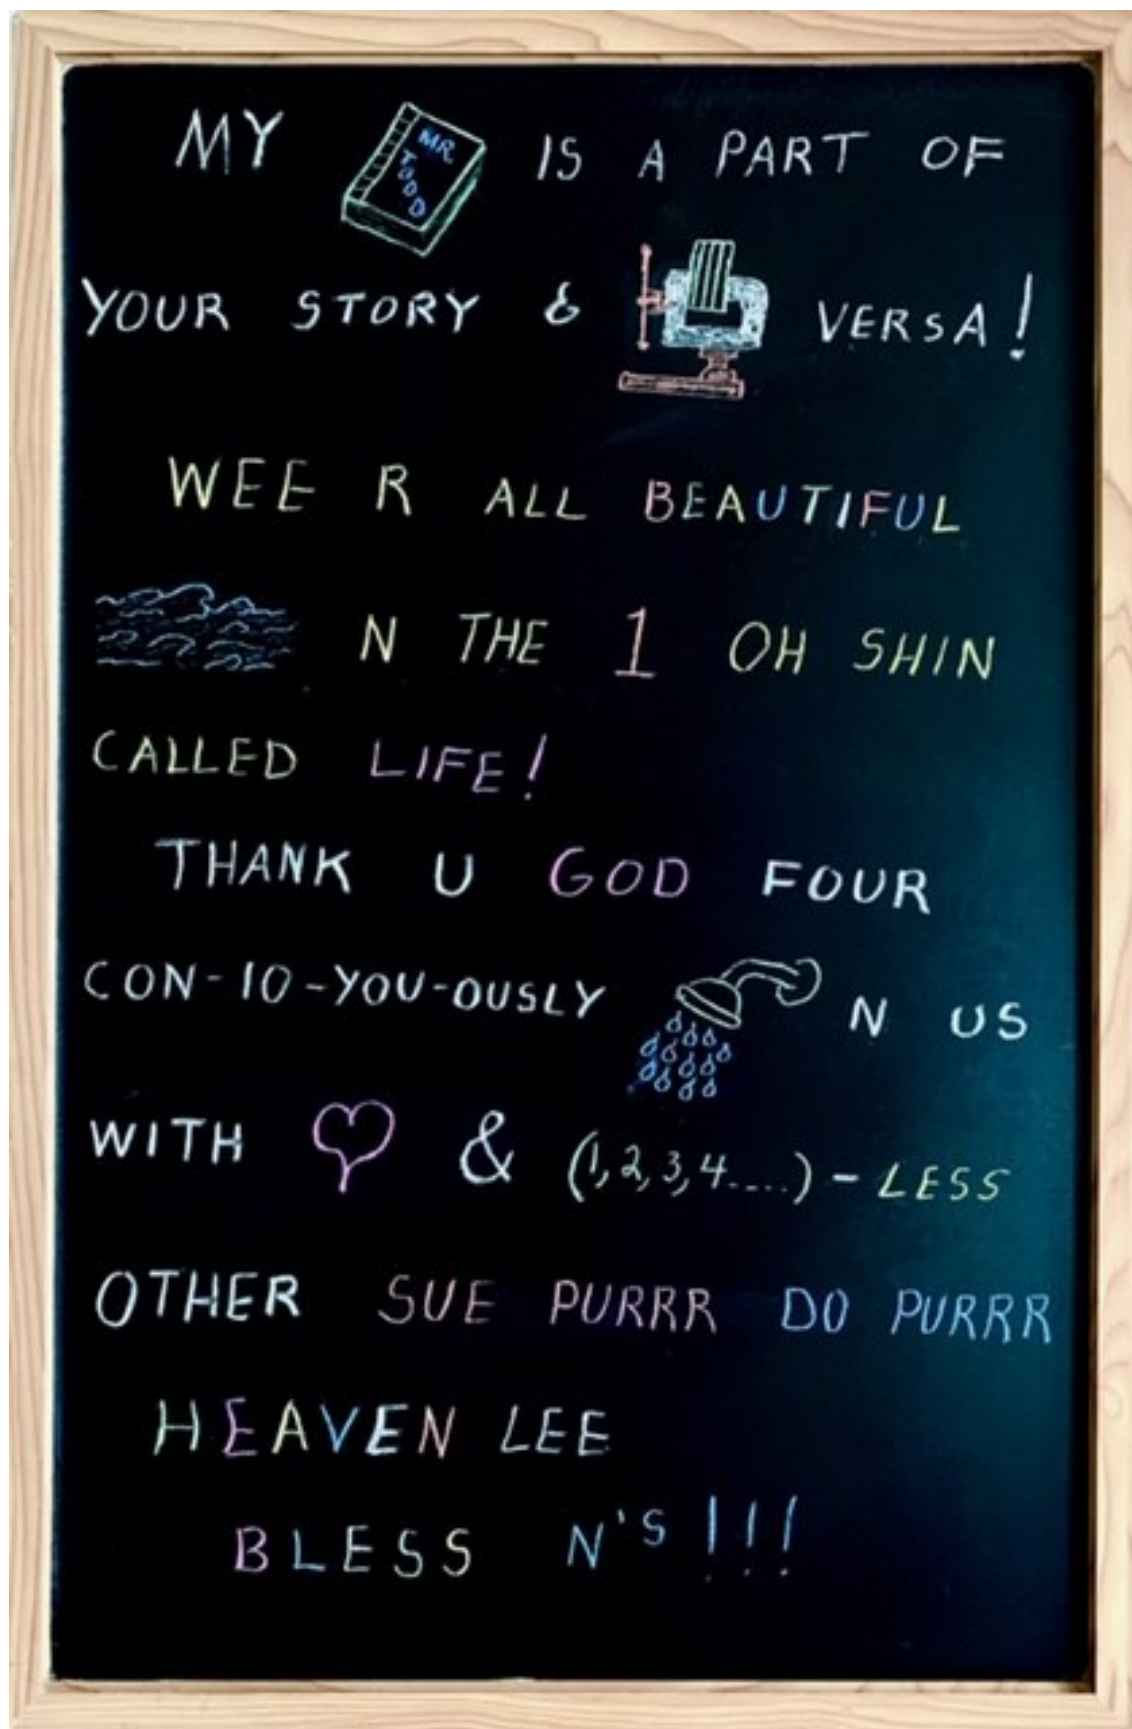 MY MR TODD IS A PART OF
YOUR STORY & VERSA!
WEE R ALL BEAUTIFUL
N THE 1 OH SHIN
CALLED LIFE!
THANK U GOD FOUR
CON-10-YOU-OUSLY N US
WITH & (1,2,3,4.....)-LESS
OTHER SUE PURRR DO PURRR
HEAVEN LEE
BLESS N'S!!!